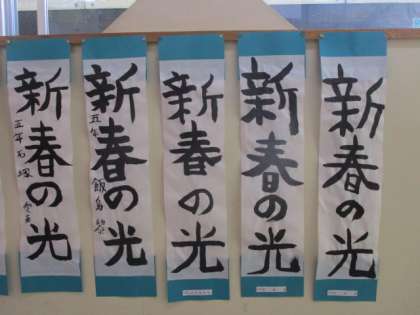 新春の光
新春の光
新春の光
新春の光
五年
新春の光
五年